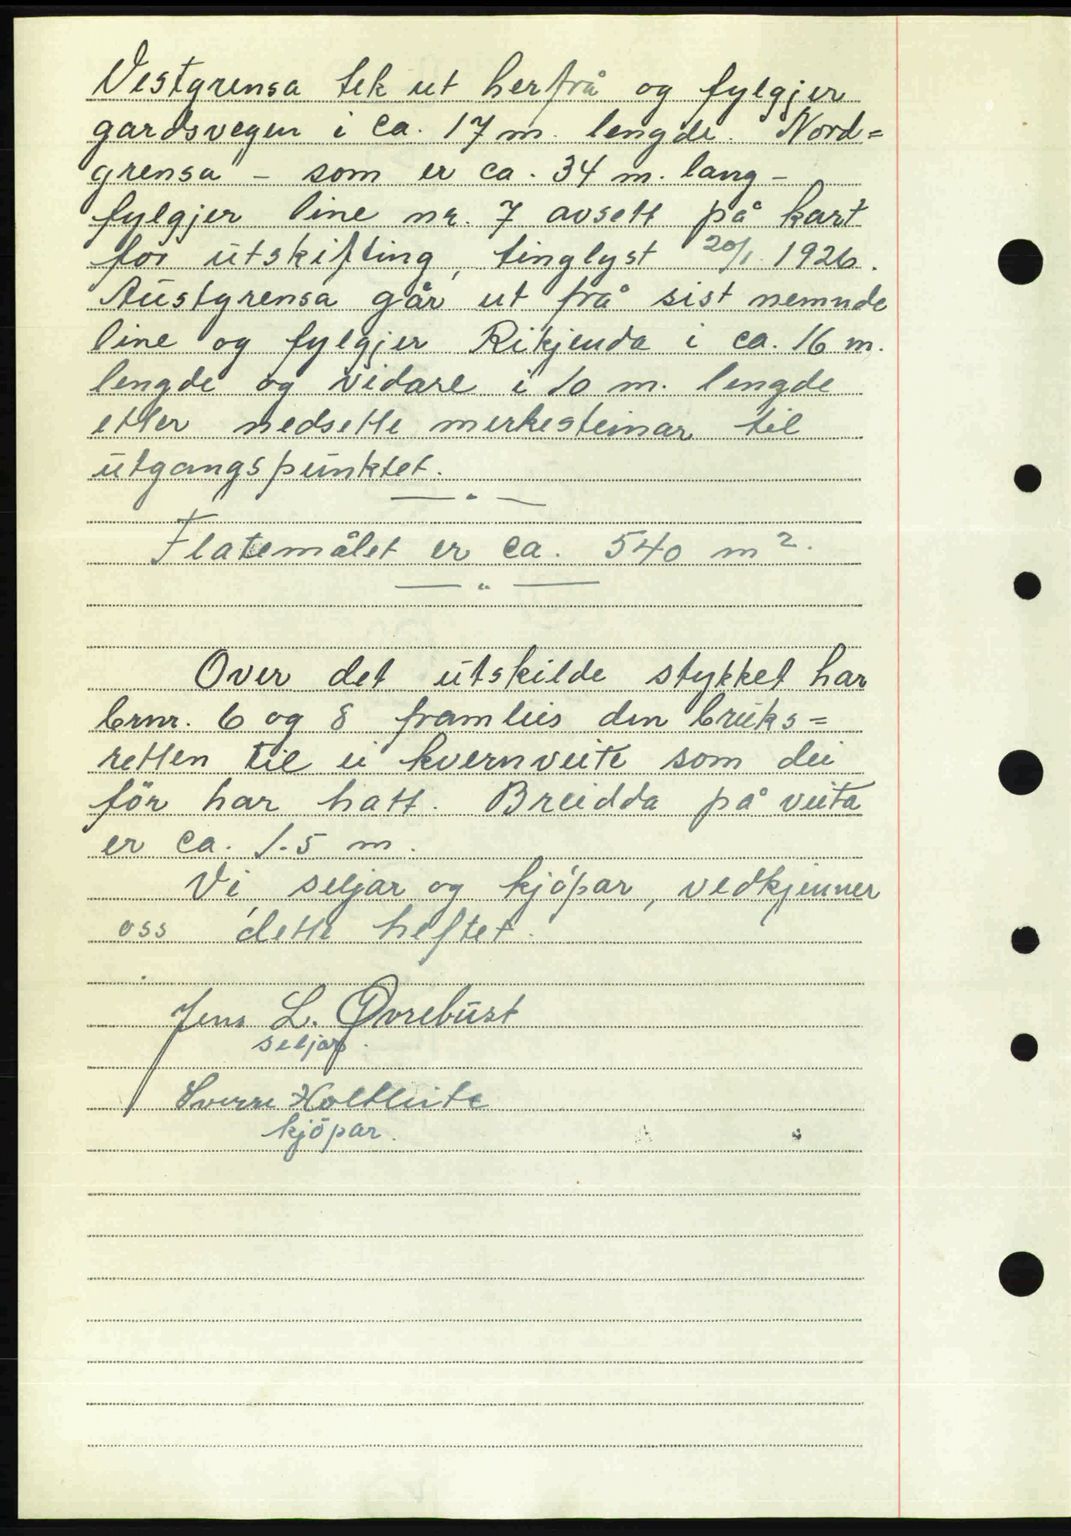 Vestgrensa tek ut herfrå og fylgjer
gardsvegen i ca. 17 m. lengde. Nord=
grensa – som er ca. 34 m. lang –
fylgjer line nr. 7 avsett på kart
for utskifting, tinglyst 20/1. 1926.
Austgrensa går ut frå sist nemnde
line og fylgjer Rikjenda i ca. 16 m.
lengde og vidare i 10 m. lengde
etter nedsette merkesteinar til
utgangspunktet.
Flatemålet er ca. 540 m².
Over det utskilde stykket har
brnr. 6 og 8 framleis den bruks=
retten til ei kvernveite som dei
för har hatt. Breidda på veita
er ca. 1.5 m.
Vi, seljar og kjöpar, vedkjenner
oss dette heftet.
Jens L. Øvrebust
seljar.
Sverre Holtleite
kjöpar.